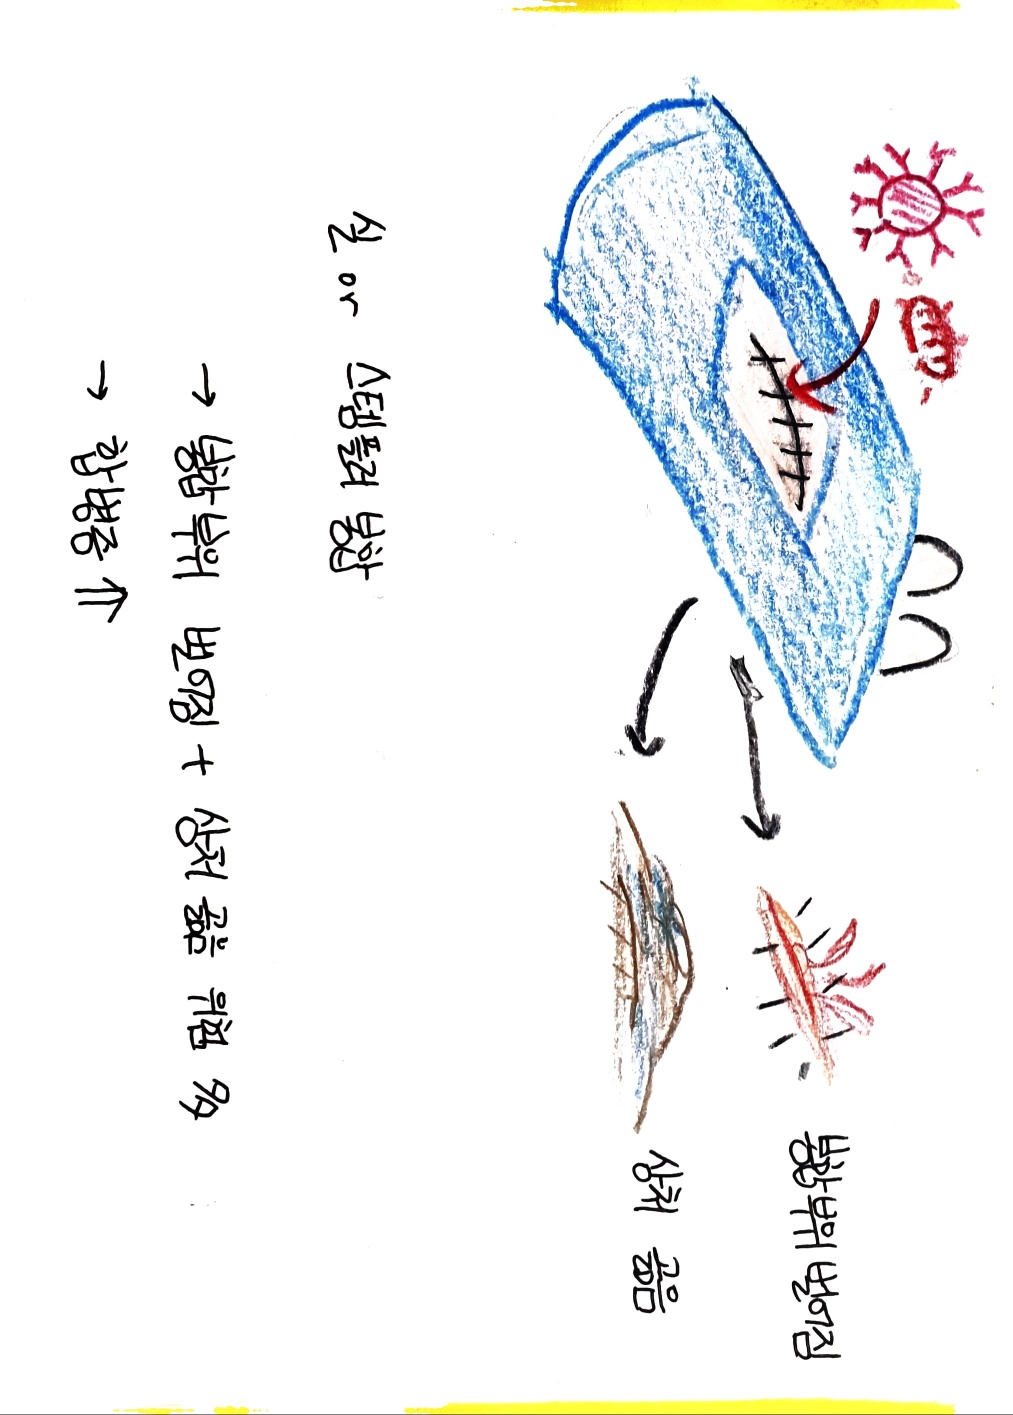 봉합부위 벌어짐
상처 곪음
실 or 스템플러 봉합
→ 봉합부위 벌어짐 + 상처 곪음 위험 多
→ 합병증 ⇑